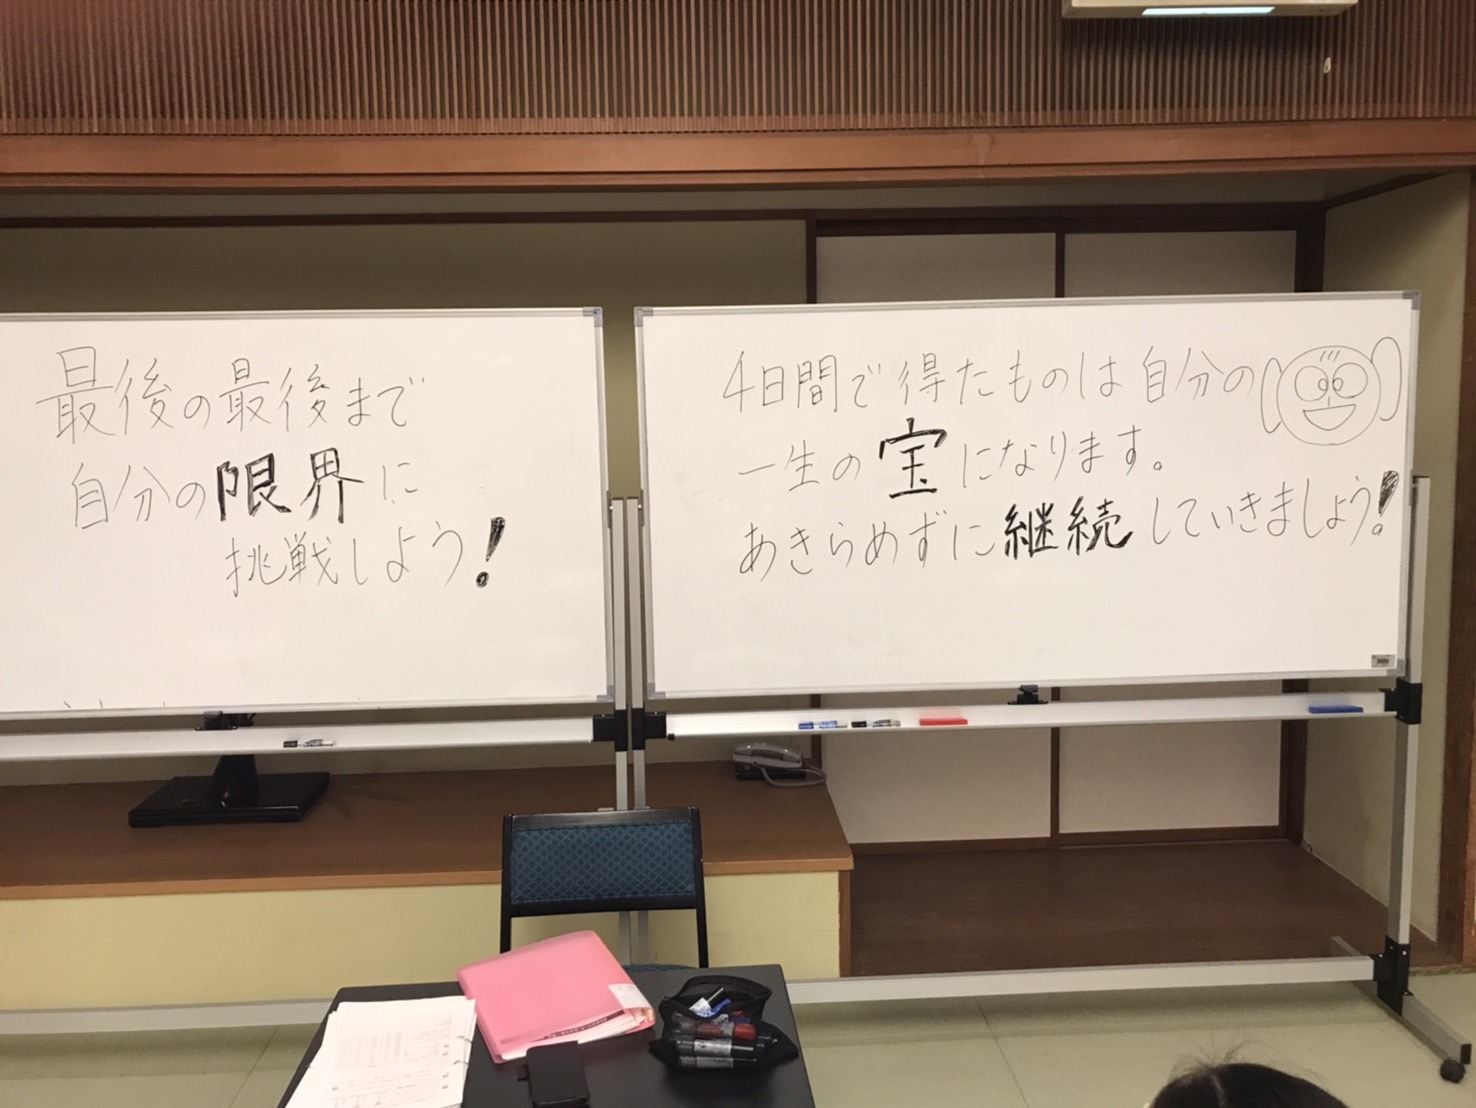 最後の最後まで
自分の限界に
挑戦しよう!
4日間で得たものは自分の
一生の宝になります。
あきらめずに継続していきましょう!